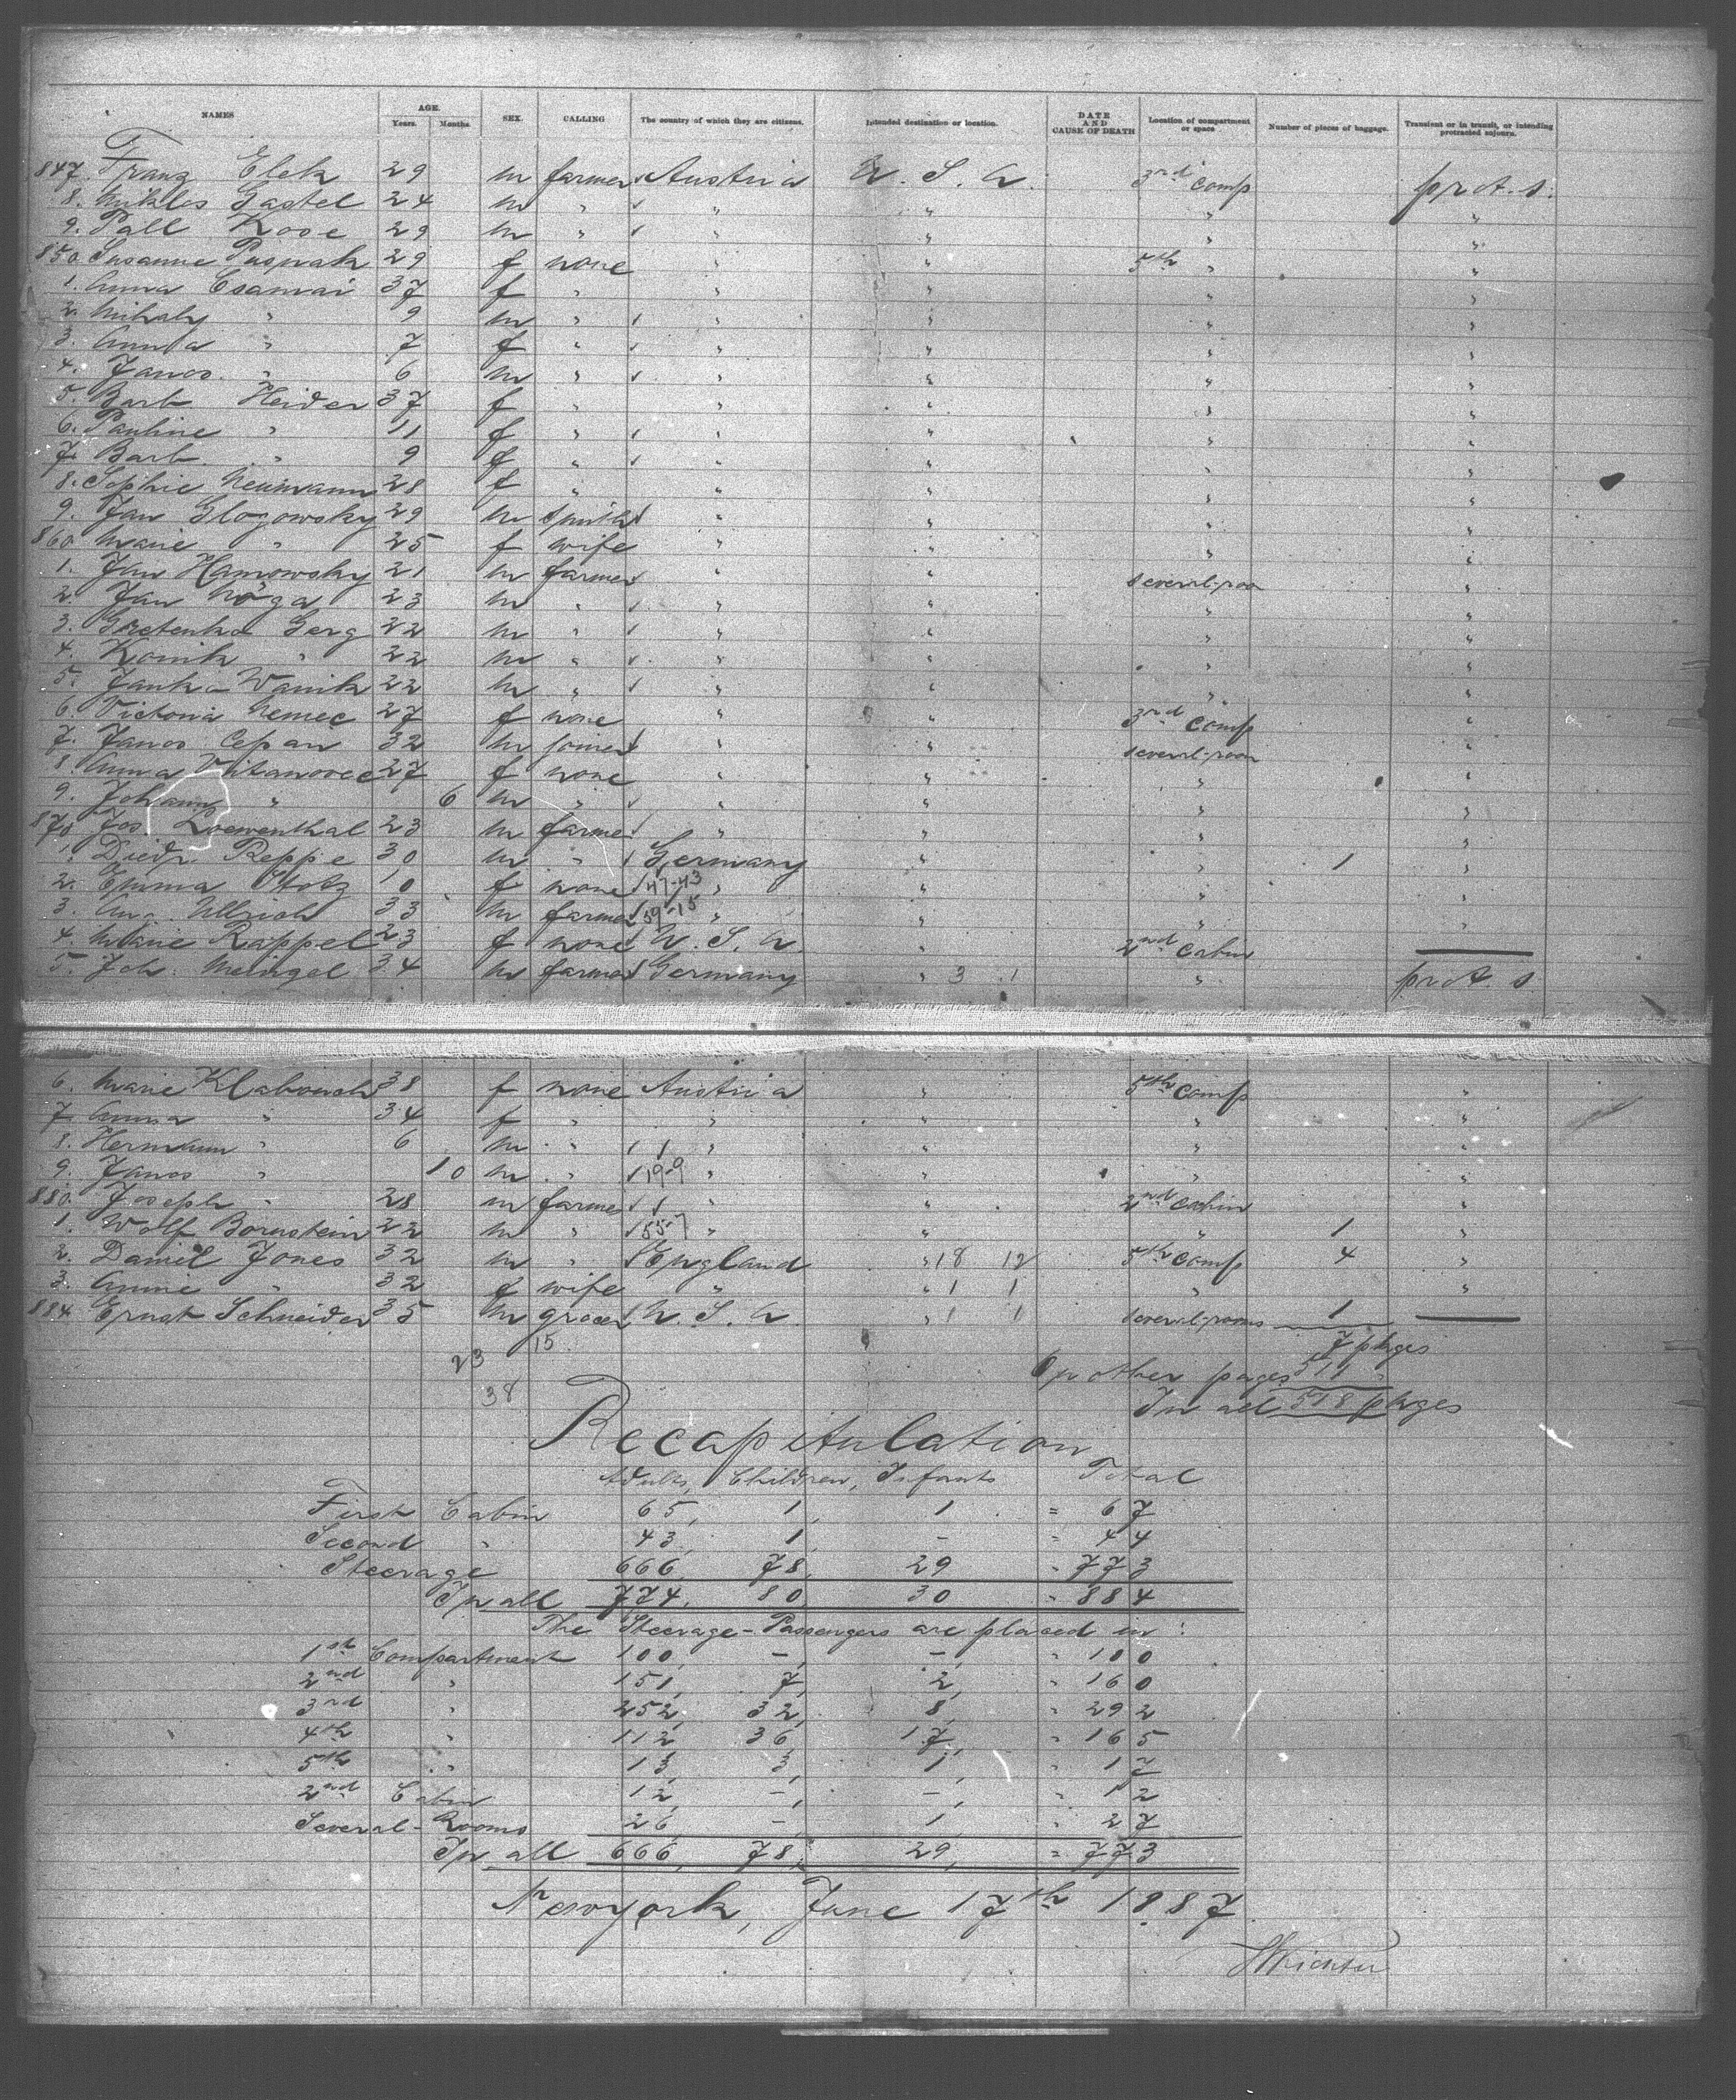 NAMES AGE. Years. Months. SEX. CALLING The country of which they are citizens. Intended destination or location. DATE AND CAUSE OF DEATH Location of compartment or space Number of pieces of baggage. Transient or in transit, or intending protracted sojourn.
847. Franz Elek 29 m farmer Austria U. S. A. 3rd comp prot. s.
8. Miklos Gastel 24 m " " " " "
9. Pall Kose 29 m " " " " "
850. Susanne Paswak 29 f none " " 5th " "
1. Anna Csamai 37 f " " " " "
2. Mihaly " 9 m " " " " "
3. Anna " 7 f " " " " "
4. Janos " 6 m " " " " "
5. Barb Heider 37 f " " " " "
6. Pauline " 11 f " " " " "
7. Barb. " 9 f " " " " "
8. Sophie Neumann 28 f " " " " "
9. Jan Glogowsky 29 m smith " " " "
860 Marie " 25 f wife " " " "
1. Jan Hamowsky 21 m farmer " " several-room "
2. Jan 23 m " " " " "
3. Gretenka Gerg 22 m " " " " "
4. Konik " 22 m " " " " "
5. Janka Wanik 22 m " " " " "
6. Victoria Nemec 27 f none " " 3rd comp "
7. Janos Cepan 32 m joiner " " several-room "
8. Anna Vitanovec 27 f none " " " "
9. Johann " 6 m " " " " "
870 Jos. Loewenthal 23 m farmer " " " "
1. Diedr. Reppe 30 m " Germany " " 1 "
2. Emma Stotz 10 f none 47-43 " " " "
3. Aug. Ullrich 33 m farmer 59-15 " " " "
4. Marie Rappel 23 f none U. S. A. " 2nd Cabin —
5. Joh. Meingel 34 m farmer Germany " 3 1 " prot. s
6. Marie Klabouch 38 f none Austria " 5th comp "
7 Anna " 34 f " " " " "
8. Hermann " 6 m " 1 " " " "
9. Janos " 10 m " 19-9 " " " "
880. Joseph " 28 m farmer 1 " " 2nd Cabin "
1. Wolf Bornstein 22 m " 55-7 " " " 1 "
2. Daniel Jones 32 m " England " 18 12 5th comp 4 "
3. Annie " 32 f wife " " 1 1 " "
884 Ernst Schneider 35 m grocer U. S. A. " 1 1 several-rooms 1 —
15 7 pkges
23 On other pages 511 "
38 In all 518 pkges
Recapitulation
Adults, Children, Infants Total
First Cabin 65, 1, 1 = 67
Second " 43, 1, - " 44
Steerage 666, 78, 29 " 773
In all 774, 80, 30 " 884
The Steerage-Passengers are placed in:
1st Compartment 100, -, -, " 100
2nd " 151, 7, 2, " 160
3rd " 252, 32, 8, " 292
4th " 112, 36, 17, " 165
5th " 13, 3, 1, " 17
2nd Cabin 12, -, -, " 12
Several-Rooms 26, -, 1, " 27
In all 666, 78, 29, = 773
Newyork, June 17th 1887.